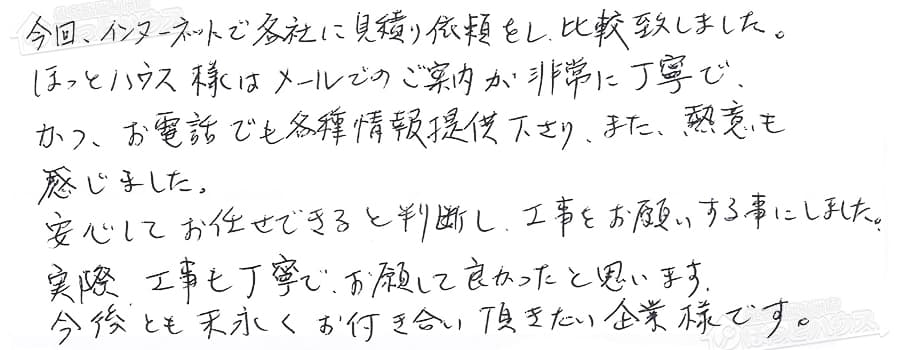 今回、インターネットで各社に見積り依頼をし、比較致しました。
ほっとハウス様はメールでのご案内が非常に丁寧で、
かつ、お電話でも各種情報提供下さり、また、熱意も
感じました。
安心してお任せできると判断し、工事をお願いする事にしました。
実際、工事も丁寧で、お願いして良かったと思います。
今後とも末永くお付き合い頂きたい企業様です。